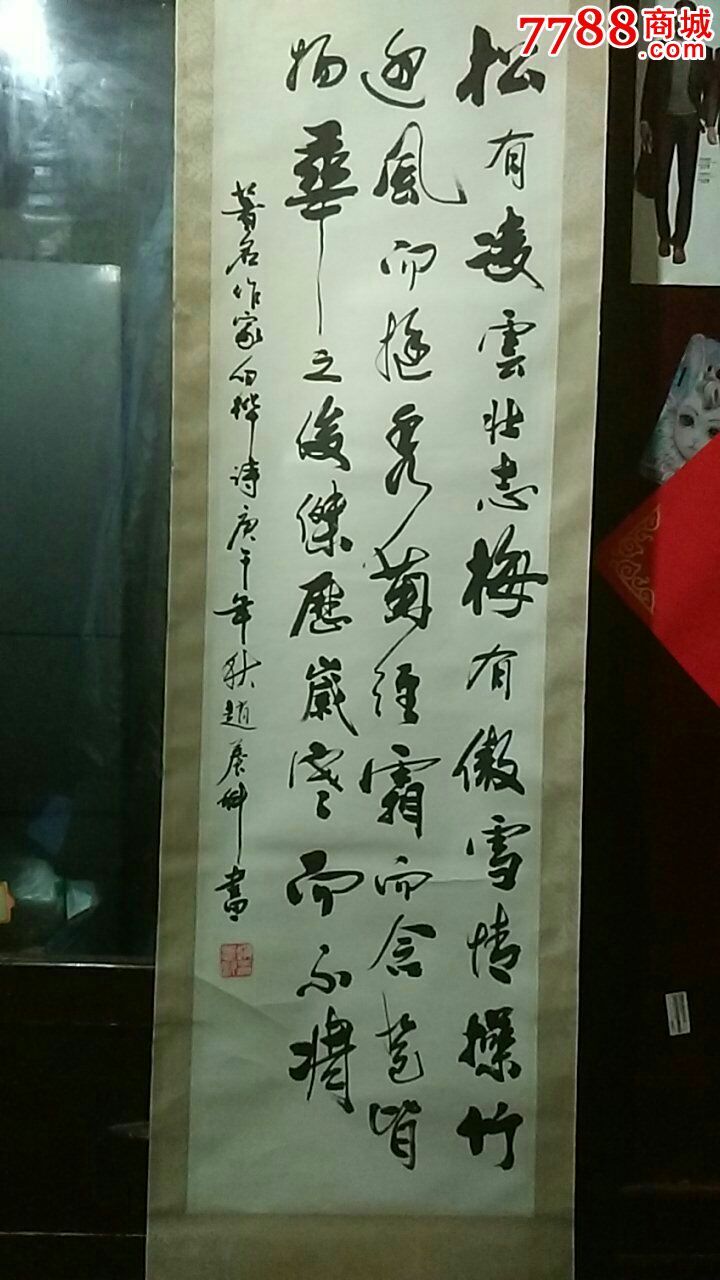 7788商城
.com
松有凌雲壮志梅有傲雪情操竹
迎風而挺秀菊经霜而含苞皆
物華之俊傑歷歲寒而不凋
著名作家白桦诗庚午年秋趙養科書